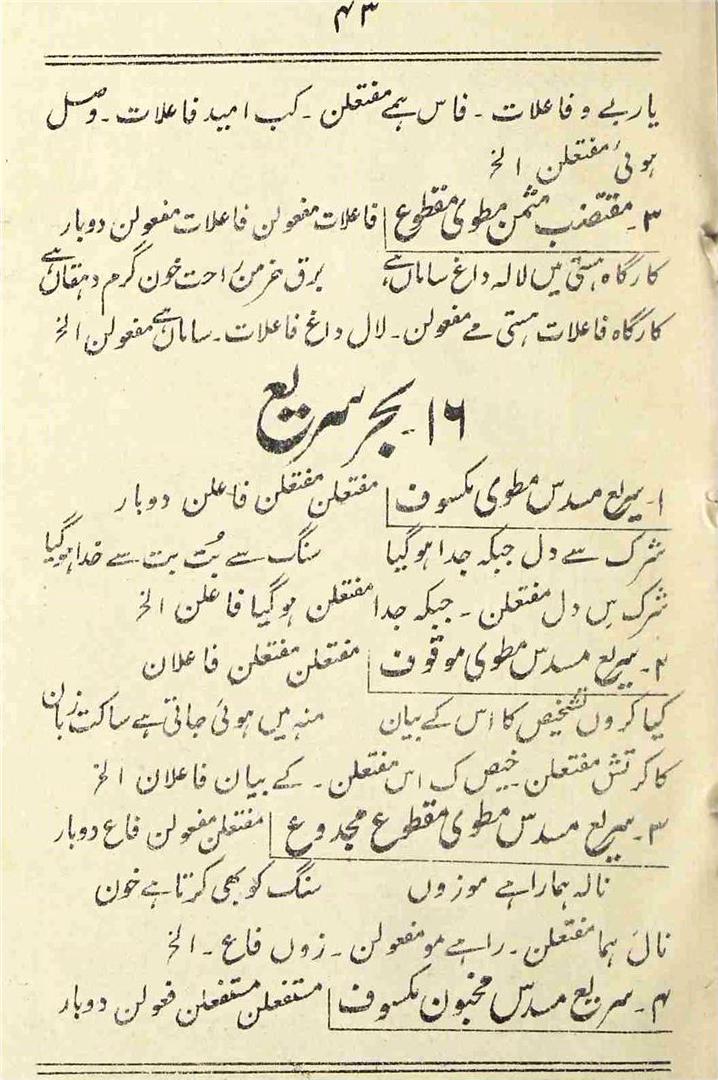 ۴۳
یار بے و فاعلات ۔ فاس ہمے مفتعلن ۔ کب امید فاعلات ۔ وصل
ہوئی مفتعلن الخ
۳۔ مقتضب مثمن مطوی مقطوع فاعلات مفعولن فاعلات مفعولن دوبار
کارگاہ ہستی میں لالہ داغ ساماں ہے برق خرمن راحت خون گرم دہقاں ہے
کارگاہ فاعلات ہستی مے مفعولن ۔ لال داغ فاعلات ۔ ساماں ہے مفعولن الخ
۱۶۔ بحر سریع
۱۔ سریع مسدس مطوی مکسوف مفتعلن مفتعلن فاعلن دوبار
شرک سے دل جبکہ جدا ہو گیا سنگ سے بُت بت سے خدا ہو گیا
شرک س دل مفتعلن ۔ جبکہ جدا مفتعلن ہو گیا فاعلن الخ
۲۔ سریع مسدس مطوی موقوف مفتعلن مفتعلن فاعلان
کیا کروں تشخیص کا اس کے بیان منہ میں ہوئی جاتی ہے ساکت زبان
کا کر تش مفتعلن ۔ خیص ک اس مفتعلن ۔ کے بیان فاعلان الخ
۳۔ سریع مسدس مطوی مقطوع مجدوع مفتعلن مفعولن فاع دوبار
نالہ ہمارا ہے موزوں سنگ کو بھی کرتا ہے خون
نالَ ہما مفتعلن ۔ راہے مو مفعولن ۔ زوں فاع ۔ الخ
۴۔ سریع مسدس مخبون مکسوف مستفعلن مستفعلن فعولن دوبار